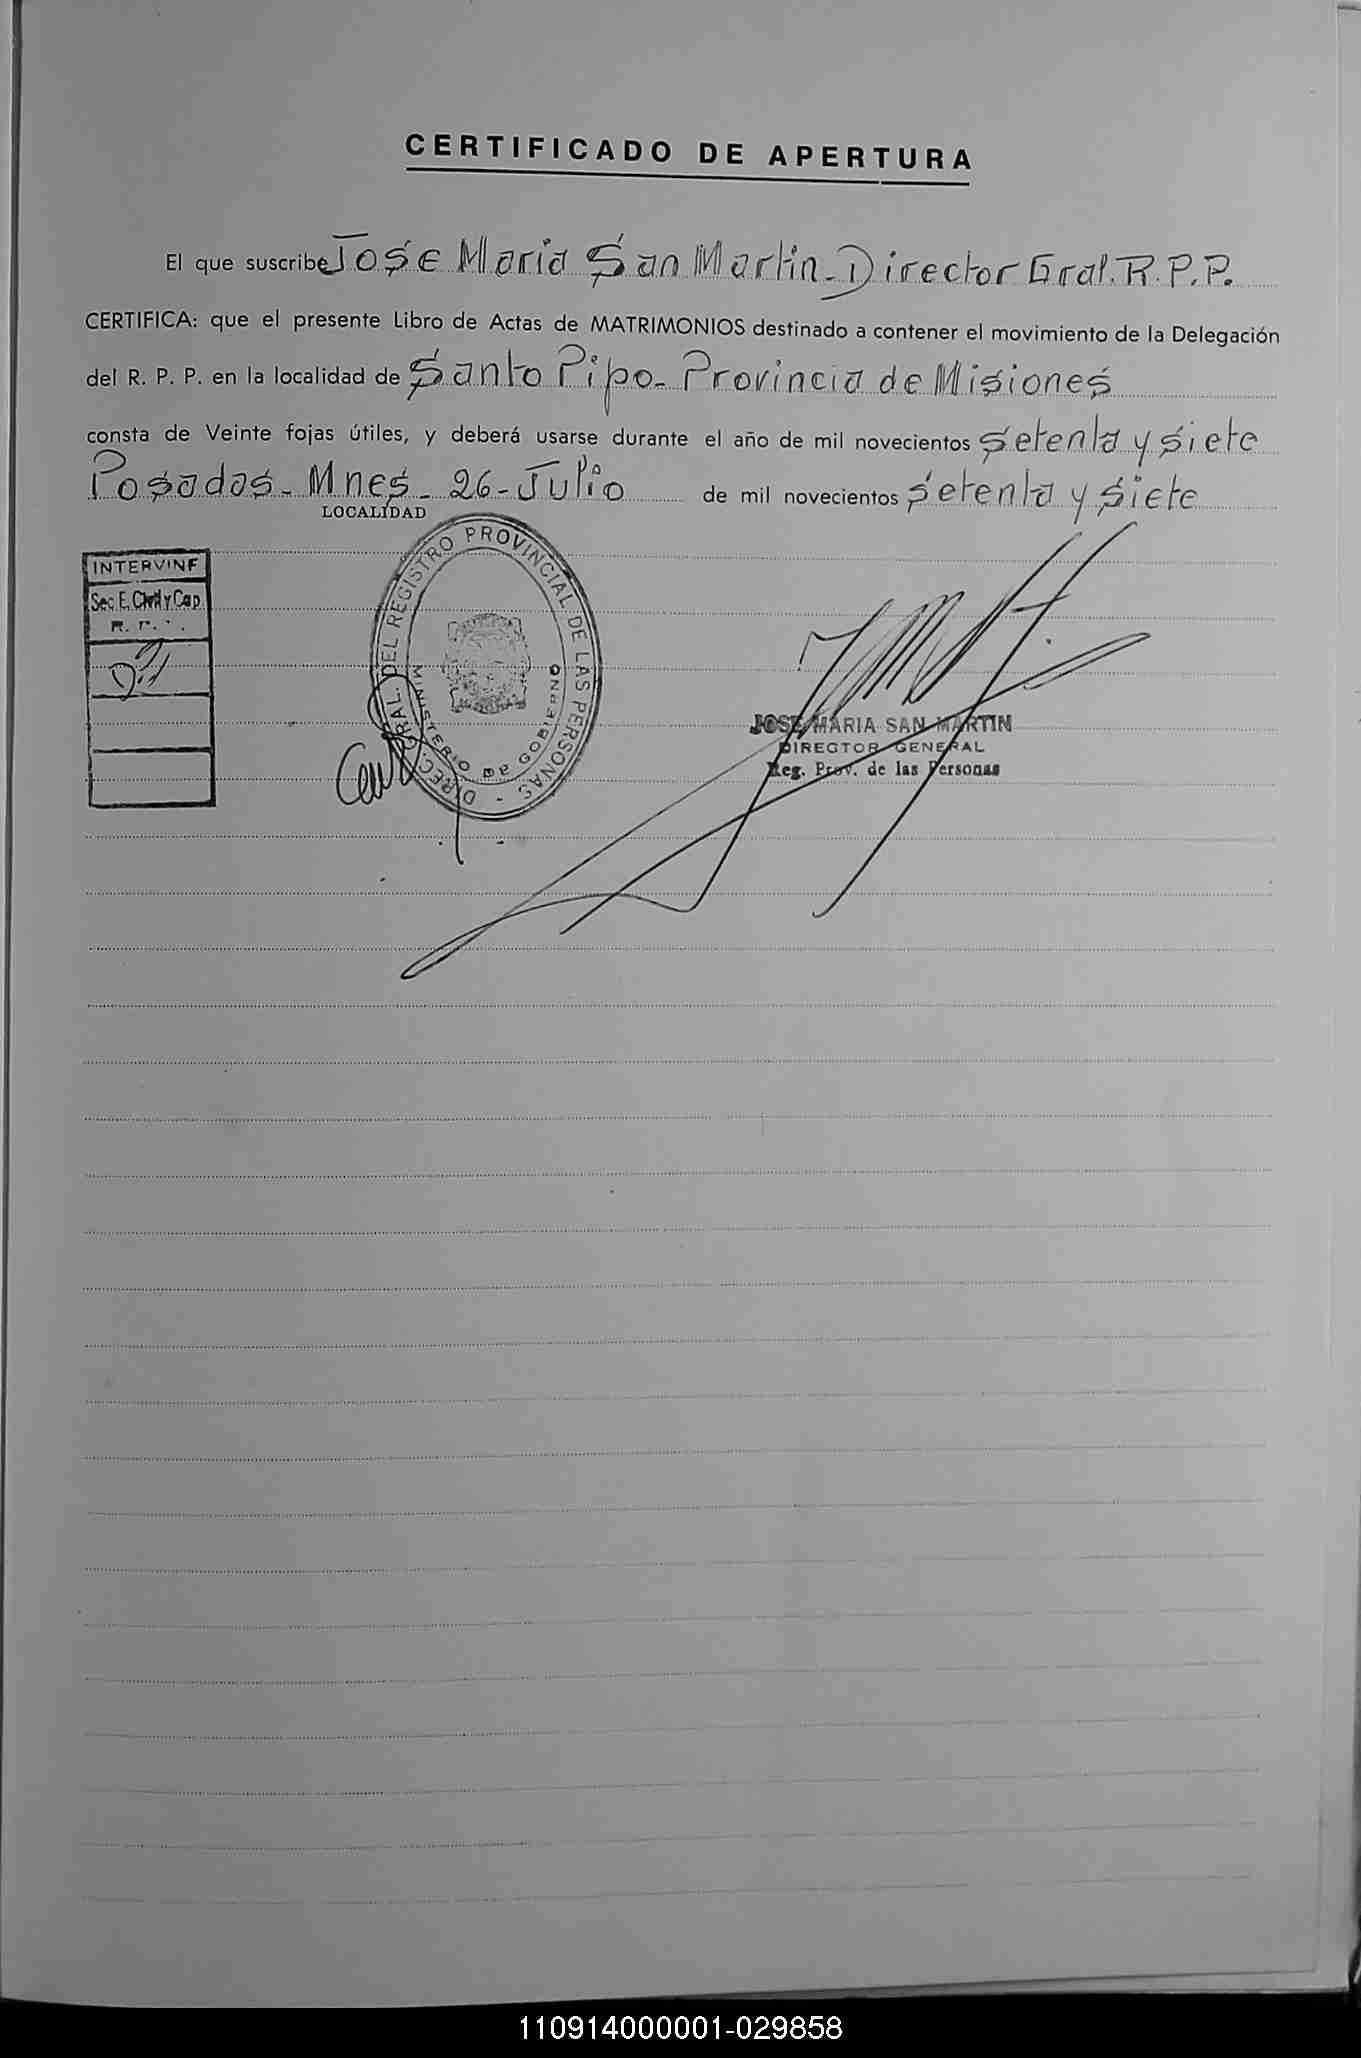 CERTIFICADO DE APERTURA
El que suscribe Jose Maria San Martin - Director Gral. R. P. P.
CERTIFICA: que el presente Libro de Actas de MATRIMONIOS destinado a contener el movimiento de la Delegación
del R. P. P. en la localidad de Santo Pipo - Provincia de Misiones
consta de Veinte fojas útiles, y deberá usarse durante el año de mil novecientos setenta y siete
Posadas - Mnes - 26 - Julio de mil novecientos setenta y siete
LOCALIDAD
INTERVINE
Sec. E. Civil y Cap.
DIREC. GRAL. DEL REGISTRO PROVINCIAL DE LAS PERSONAS -
MINISTERIO DE GOBIERNO
JOSE MARIA SAN MARTIN
DIRECTOR GENERAL
Reg. Prov. de las Personas
110914000001-029858